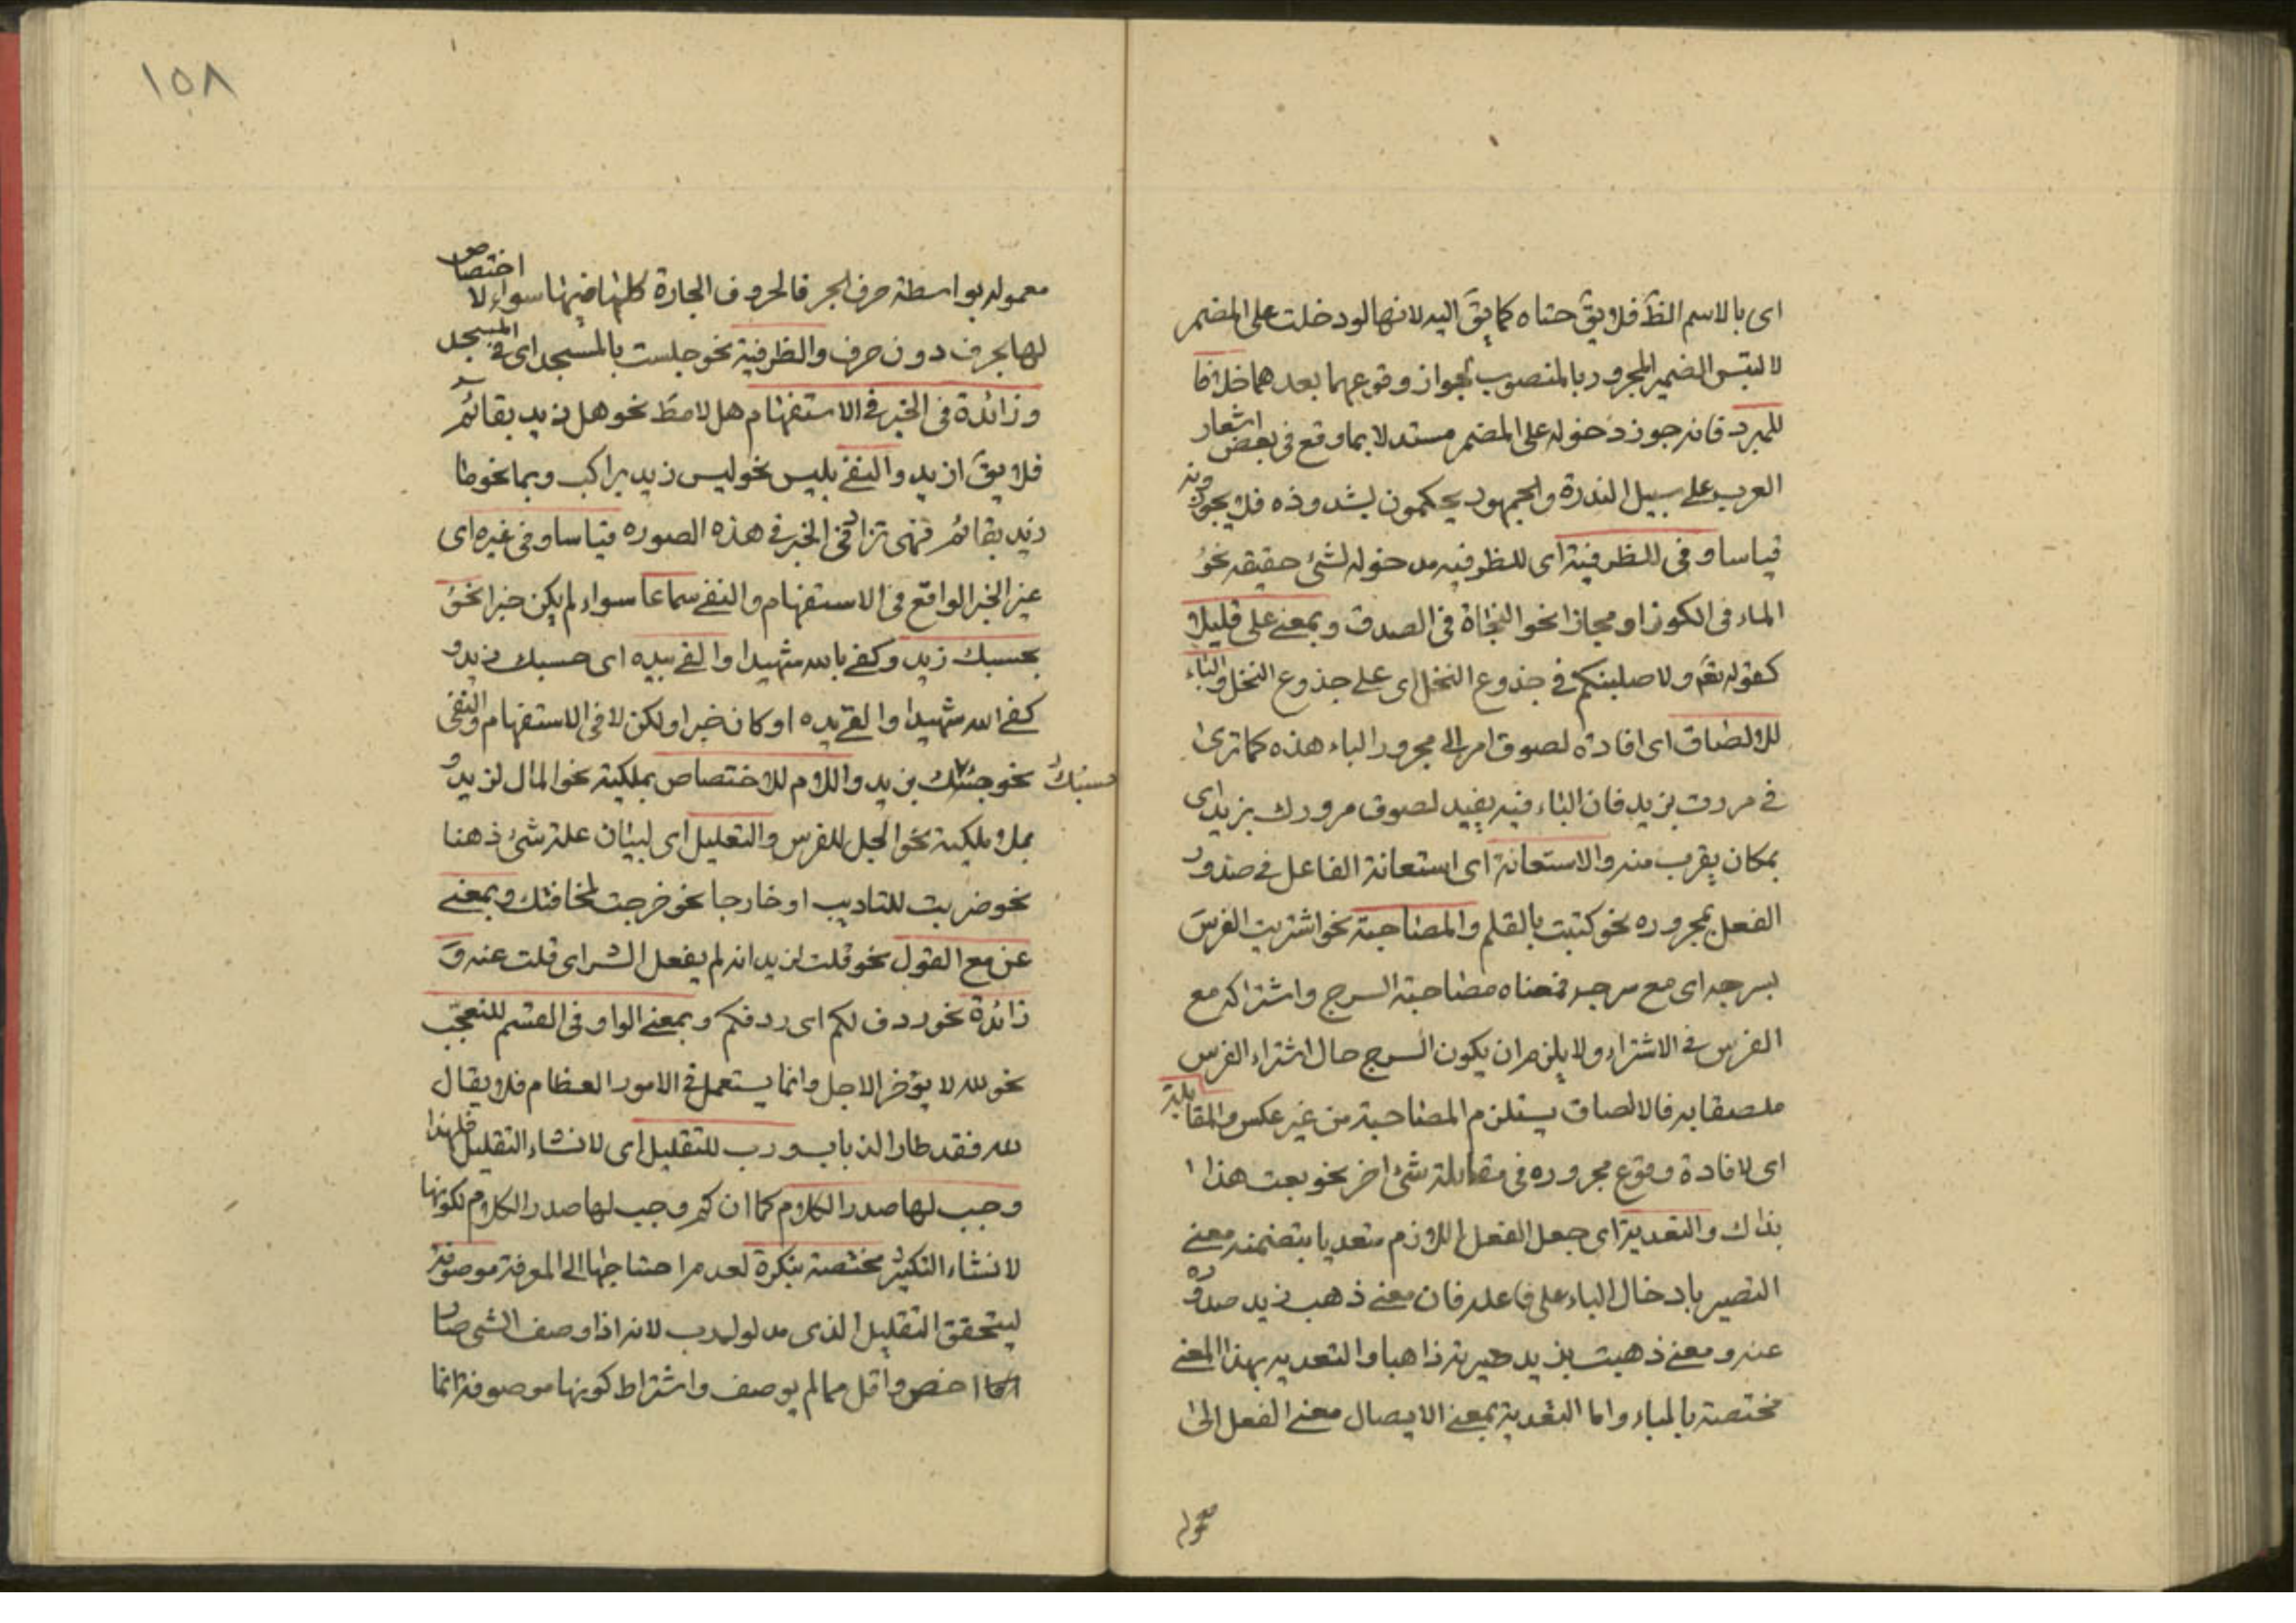 اى بالاسم الظَ فلا يقَ حتاه كما يقَ اليه لانها لو دخلت على المضمر
لالتبس الضمير المجرور بالمنصوب لجواز وقوعهما بعدهما خلافا
للمبرد فانه جوز دخوله على المضمر مستدلا بما وقع فى بعض اشعار
العرب على سبيل الندرة والجمهور يحكمون بشذوذه فلا يجوزونه
قياسا وفى للظرفية اى للظرفيه مدخوله لشئ حقيقه نحو
الماء فى الكوز او مجازا نحو النجاة فى الصدق وبمعنى على قليلا
كقوله تعَ ولاصلبنكم فى جذوع النخل اى على جذوع النخل والباء
للالصاق اى افادة لصوق امر الى مجرور الباء هذه كما ترى
فى مررت بزيد فان الباء فيه يفيد لصوق مرورك بزيد اى
بمكان يقرب منه والاستعانة اى استعانة الفاعل فى صدور
الفعل بمجروره نحو كتبت بالقلم والمصاحبة نحو اشتريت الفرس
بسرجه اى مع سرجه فمعناه مصاحبة السرج واشتراكه مع
الفرس فى الاشتراء ولا يلزم ان يكون السرج حال اشتراء الفرس
ملصقا به فالالصاق يستلزم المصاحبة من غير عكس والمقابلة
اى لافادة وقوع مجروره فى مقابلة شئ اخر نحو بعت هذا
بذاك والتعدية اى جعل الفعل اللازم متعديا بتضمنه معنى
التصيير بادخال الباء على فاعله فان معنى ذهب زيد صدوره
عنه ومعنى ذهبت بزيد صيرته ذاهبا والتعديه بهذا المعنى
مختصة بالباء واما التعدية بمعنى الايصال معنى الفعل الى
معموله
١٥٨
معموله بواسطة حرف الجر فالحروف الجارة كلها فيها سواء لا اختصاص
لها بحرف دون حرف والظرفية نحو جلست بالمسجد اى فى المسجد
وزائدة فى الخبر فى الاستفهام هل لا مطَ نحو هل زيد بقائم
فلا يقَ ازيد والنفى بليس نحو ليس زيد براكب وبما نحو ما
زيد بقائم فهى تزاد فى الخبر فى هذه الصوره قياسا وفى غيره اى
غير الخبر الواقع فى الاستفهام والنفى سماعا سواء لم يكن خبرا نحو
بحسبك زيد وكفى بالله شهيدا والقى بيده اى حسبك زيد و
كفى الله شهيدا والقى يده او كان خبرا ولكن لا فى الاستفهام والنفى
نحو حسبك بزيد واللام للاختصاص بملكية نحو المال لزيد و
بلا ملكية نحو الجل للفرس والتعليل اى لبيان علة شئ ذهنا
نحو ضربت للتاديب او خارجا نحو خرجت لمخافتك وبمعنى
عن مع القول نحو قلت لزيد انه لم يفعل الشر اى قلت عنه و
زائدة نحو ردف لكم اى ردفكم وبمعنى الواو فى القسم للتعجب
نحو لله لا يؤخر الاجل وانما يستعمل فى الامور العظام فلا يقال
لله فقد طار الذباب ورب للتقليل اى لانشاء التقليل فلهذا
وجب لها صدر الكلام كما ان كم وجب لها صدر الكلام لكونها
لانشاء التكثير مختصة بنكرة لعدم احتياجها الى المعرفة موصوفة
ليتحقق التقليل الذى مدلول رب لانه اذا وصف الشى صار
اخص واقل مما لم يوصف واشتراط كونها موصوفة انما